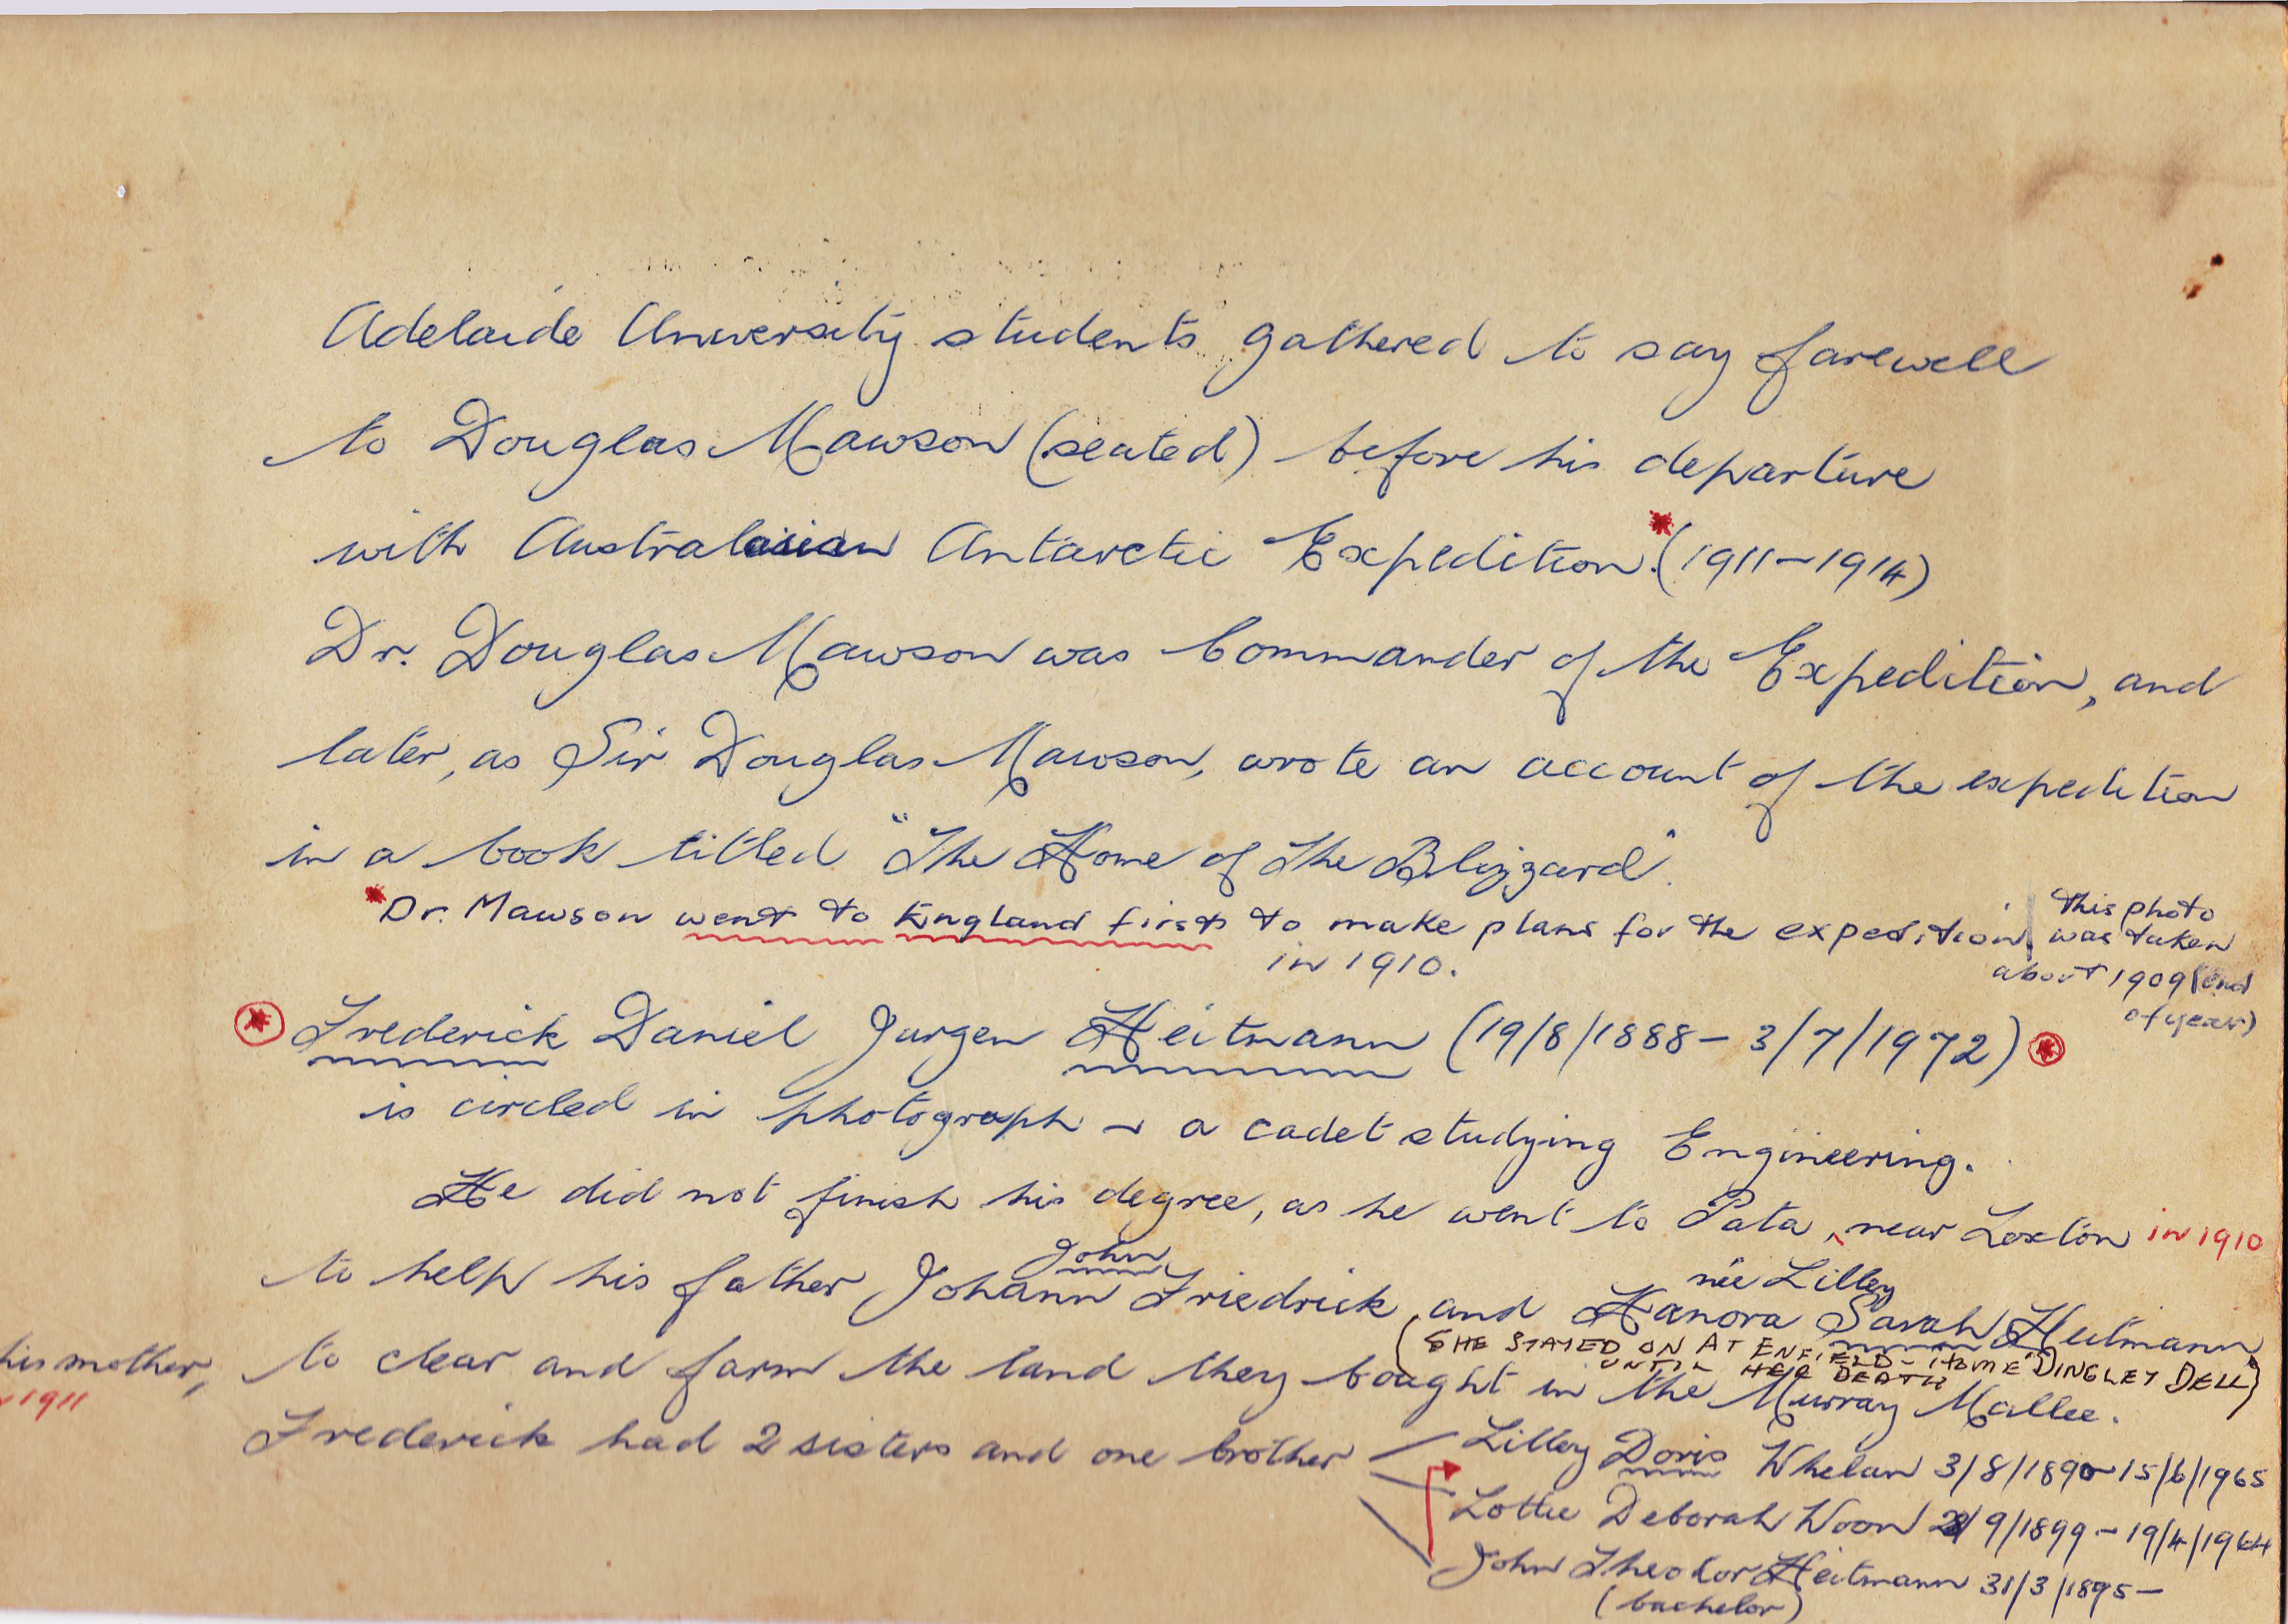 Adelaide University students gathered to say farewell
to Douglas Mawson (seated) before his departure
with Australasian Antarctic Expedition.* (1911-1914)
Dr. Douglas Mawson was Commander of the Expedition, and
later, as Sir Douglas Mawson, wrote an account of the expedition
in a book titled "The Home of the Blizzard".
*Dr. Mawson went to England first to make plans for the expedition
in 1910.
This photo
was taken
about 1909 (end
of year)
* Frederick Daniel Jurgen Heitmann (19/8/1888 - 3/7/1972) *
is circled in photograph - a cadet studying Engineering.
He did not finish his degree, as he went to Pata, near Loxton in 1910
to help his father Johann Friedrick, and Hanora Sarah Heitmann
John
née Lilley
(SHE STAYED ON AT ENFIELD - HOME "DINGLEY DELL"
UNTIL HER DEATH)
his mother,
1911
to clear and farm the land they bought in the Murray Mallee.
Frederick had 2 sisters and one brother
Lilley Doris Whelan 3/8/1890-15/6/1965
Lottie Deborah Woon /9/1899 - 19/4/1964
John Theodor Heitmann 31/3/1895 -
(bachelor)